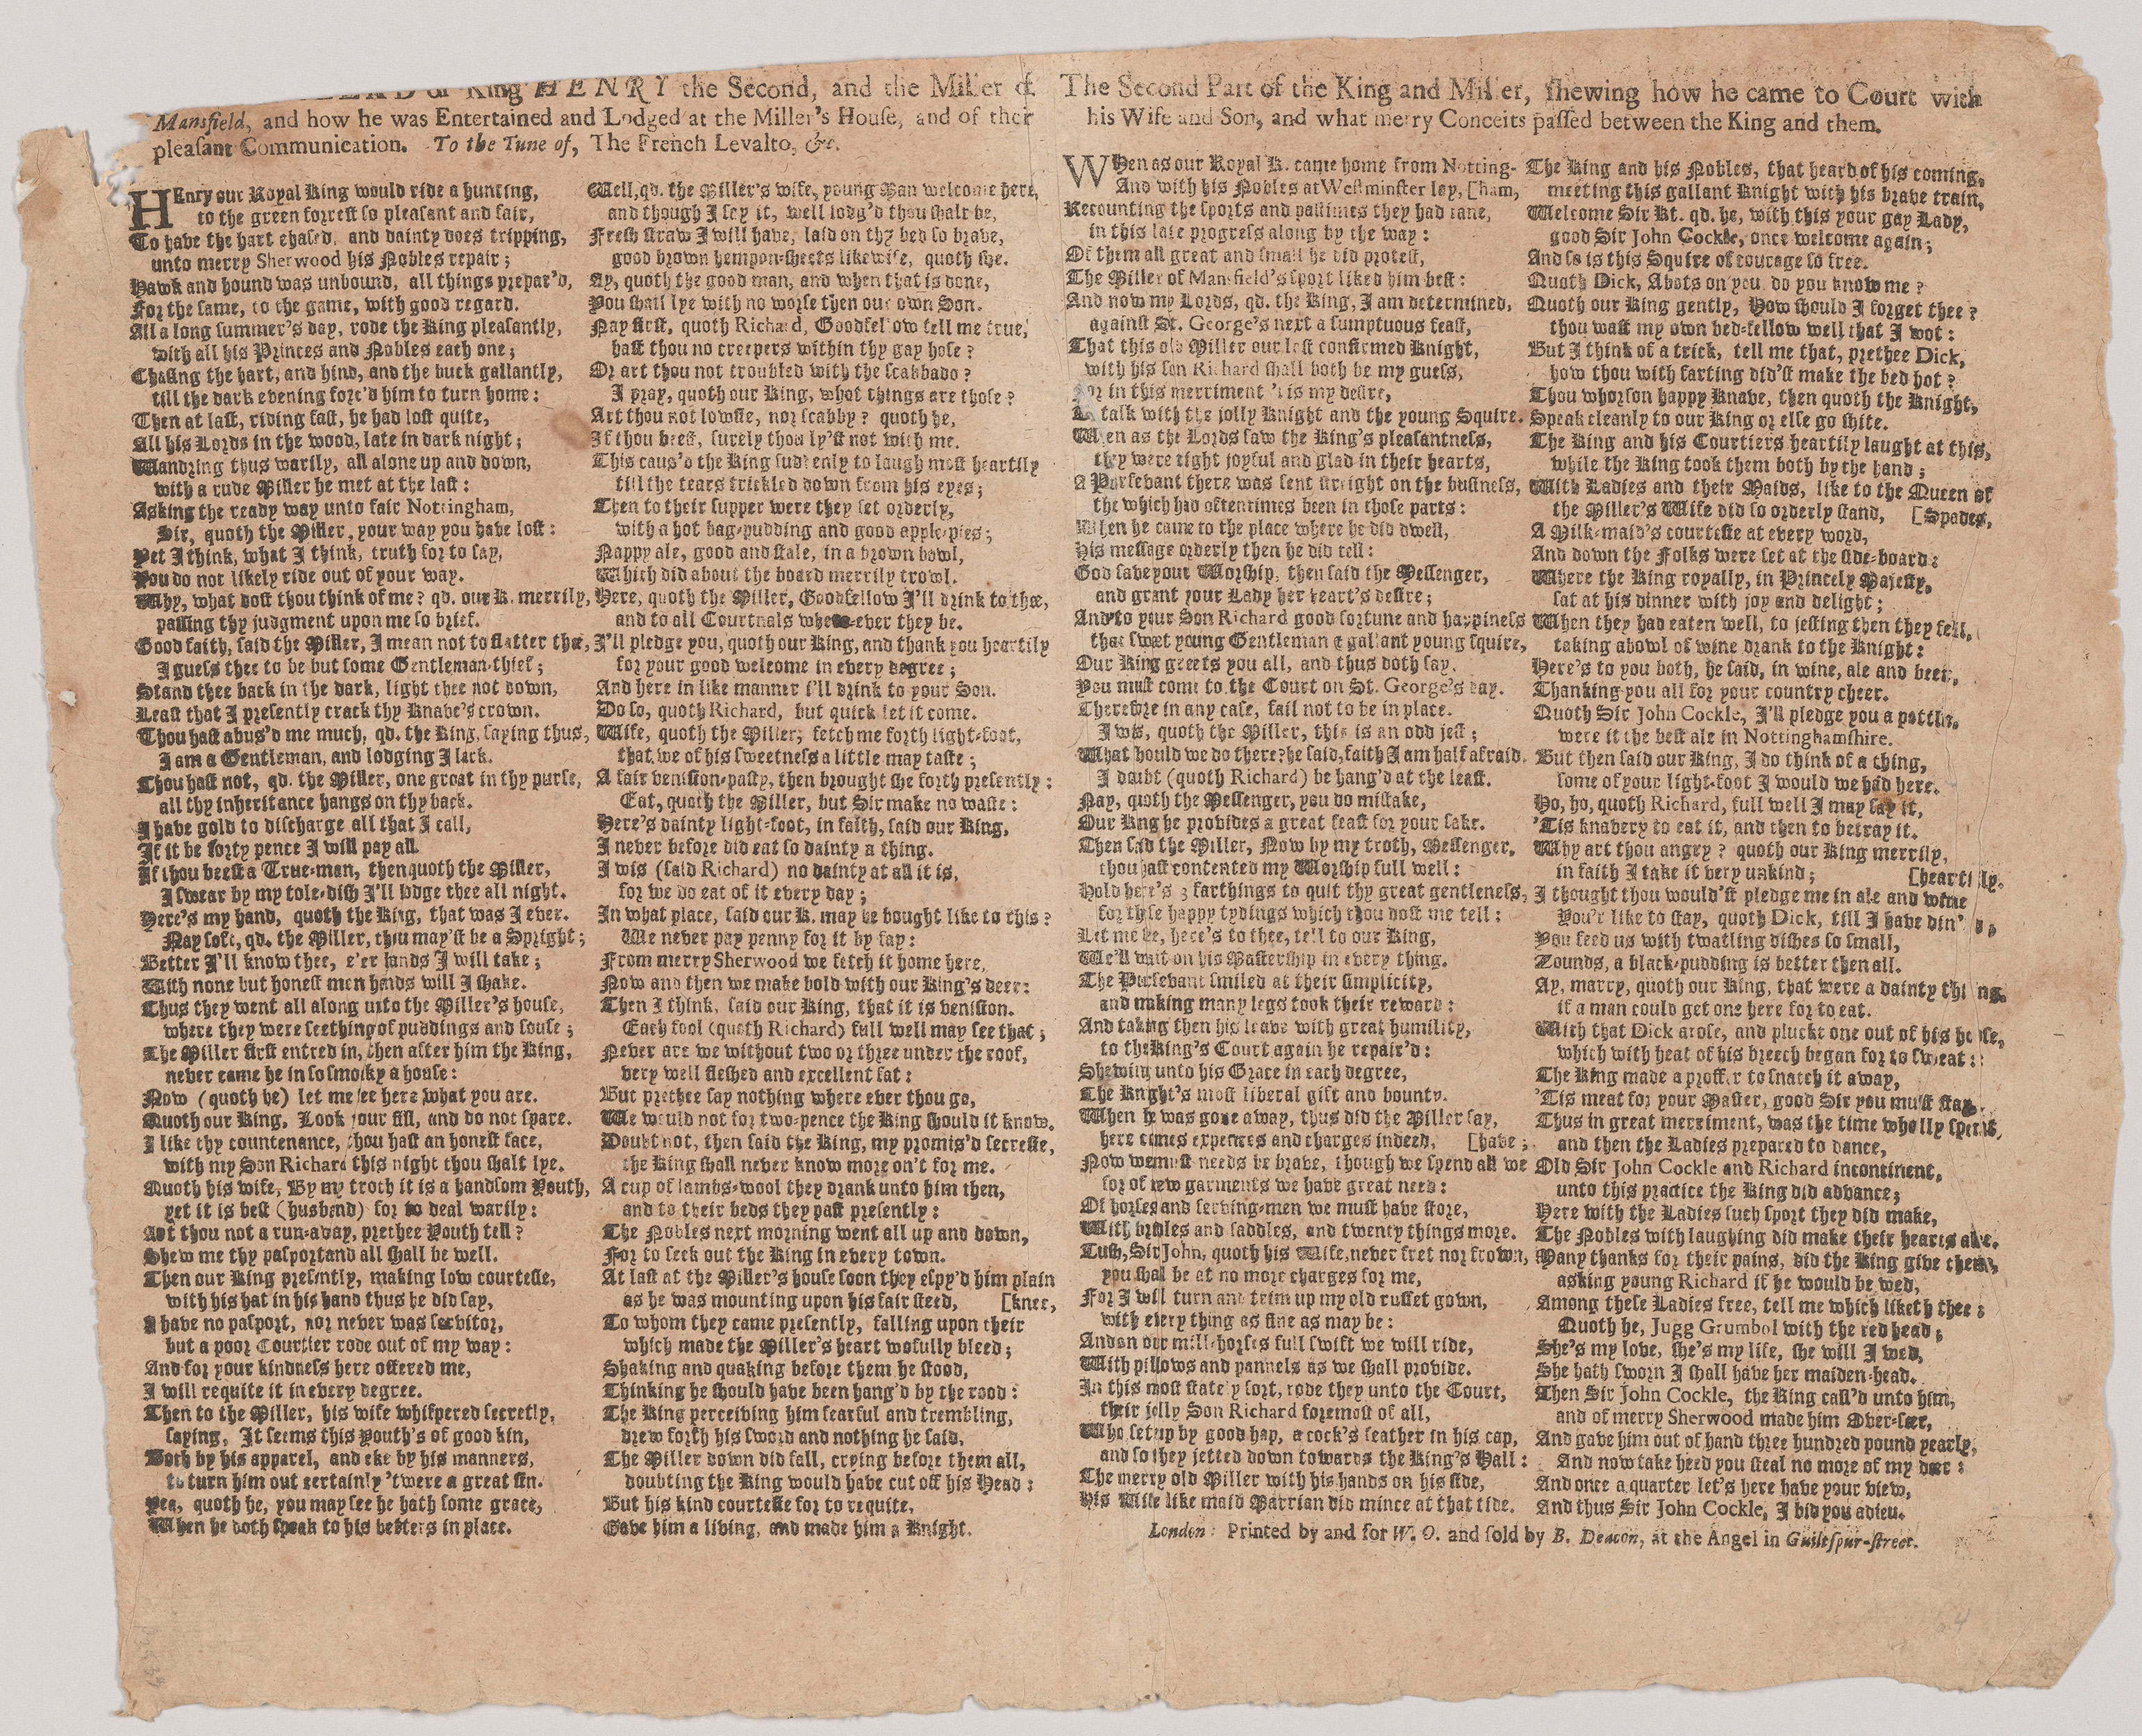 of King HENRY the Second, and the Miller of
Mansfield, and how he was Entertained and Lodged at the Miller's House, and of their
pleasant Communication. To the Tune of, The French Levalto, &c.
HEnry our Royal King would ride a hunting,
to the green forrest so pleasant and fair,
To have the hart chased, and dainty does tripping,
unto merry Sherwood his Nobles repair;
Hawk and hound was unbound, all things prepar'd,
For the same, to the game, with good regard.
All a long summer's day, rode the King pleasantly,
with all his Princes and Nobles each one;
Chasing the hart, and hind, and the buck gallantly,
till the dark evening forc'd him to turn home:
Then at last, riding fast, he had lost quite,
All his Lords in the wood, late in dark night;
Wandring thus warily, all alone up and down,
with a rude Miller he met at the last:
Asking the ready way unto fair Nottingham,
Sir, quoth the Miller, your way you have lost:
Yet I think, what I think, truth for to say,
You do not likely ride out of your way.
Why, what dost thou think of me? qd. our K. merrily,
passing thy judgment upon me so brief.
Good faith, said the Miller, I mean not to flatter thee,
I guess thee to be but some Gentleman-thief;
Stand thee back in the dark, light thee not down,
Least that I presently crack thy Knave's crown.
Thou hast abus'd me much, qd. the King, saying thus,
I am a Gentleman, and lodging I lack.
Thou hast not, qd. the Miller, one groat in thy purse,
all thy inheritance hangs on thy back.
I have gold to discharge all that I call,
If it be forty pence I will pay all.
If thou beest a True-man, then quoth the Miller,
I swear by my tole-dish I'll lodge thee all night.
Here's my hand, quoth the King, that was I ever.
Nay soft, qd. the Miller, thou may'st be a Spright;
Better I'll know thee, e'er hands I will take;
With none but honest men hands will I shake.
Thus they went all along unto the Miller's house,
where they were seething of puddings and souse;
The Miller first entred in, then after him the King,
never came he in so smoaky a house:
Now (quoth he) let me see here what you are.
Quoth our King, Look your fill, and do not spare.
I like thy countenance, thou hast an honest face,
with my Son Richard this night thou shalt lye.
Quoth his wife, By my troth it is a handsom Youth,
yet it is best (husband) for to deal warily:
Art thou not a run-away, prethee Youth tell?
Shew me thy pasport and all shall be well.
Then our King presently, making low courtesie,
with his hat in his hand thus he did say,
I have no pasport, nor never was servitor,
but a poor Courtier rode out of my way:
And for your kindness here offered me,
I will requite it in every degree.
Then to the Miller, his wife whispered secretly,
saying, It seems this Youth's of good kin,
Both by his apparel, and eke by his manners,
to turn him out certainly 'twere a great sin.
Yea, quoth he, you may see he hath some grace,
When he doth speak to his betters in place.
Well, qd. the Miller's wife, young Man welcome here,
and though I say it, well lodg'd thou shalt be,
Fresh straw I will have, laid on thy bed so brave,
good brown hempen-sheets likewise, quoth she.
Ay, quoth the good man, and when that is done,
You shall lye with no worse then our own Son.
Nay first, quoth Richard, Goodfellow tell me true,
hast thou no creepers within thy gay hose?
Or art thou not troubled with the scabbado?
I pray, quoth our King, what things are those?
Art thou not lowsie, nor scabby? quoth he,
If thou beest, surely thou ly'st not with me.
This caus'd the King suddenly to laugh most heartily
till the tears trickled down from his eyes;
Then to their supper were they set orderly,
with a hot bag-pudding and good apple-pies;
Nappy ale, good and stale, in a brown bowl,
Which did about the board merrily trowl.
Here, quoth the Miller, Goodfellow I'll drink to thee,
and to all Courtnals where-ever they be.
I'll pledge you, quoth our King, and thank you heartily
for your good welcome in every degree;
And here in like manner I'll drink to your Son.
Do so, quoth Richard, but quick let it come.
Wife, quoth the Miller; fetch me forth light-foot,
that we of his sweetness a little may taste;
A fair venision-pasty, then brought she forth presently:
Eat, quoth the Miller, but Sir make no waste:
Here's dainty light-foot, in faith, said our King,
I never before did eat so dainty a thing.
I wis (said Richard) no dainty at all it is,
for we do eat of it every day;
In what place, said our K. may be bought like to this?
We never pay penny for it by fay:
From merry Sherwood we fetch it home here,
Now and then we make bold with our King's deer:
Then I think, said our King, that it is venision.
Each fool (quoth Richard) full well may see that;
Never are we without two or three under the roof,
very well fleshed and excellent fat:
But prethee say nothing where ever thou go,
We would not for two-pence the King should it know.
Doubt not, then said the King, my promis'd secresie,
the King shall never know more on't for me.
A cup of lambs-wool they drank unto him then,
and to their beds they past presently:
The Nobles next morning went all up and down,
For to seek out the King in every town.
At last at the Miller's house soon they espy'd him plain
as he was mounting upon his fair steed, [knee,
To whom they came presently, falling upon their
which made the Miller's heart wofully bleed;
Shaking and quaking before them he stood,
Thinking he should have been hang'd by the rood:
The King perceiving him fearful and trembling,
drew forth his sword and nothing he said,
The Miller down did fall, crying before them all,
doubting the King would have cut off his Head:
But his kind courtesie for to requite,
Gave him a living, and made him a Knight.
The Second Part of the King and Miller, shewing how he came to Court with
his Wife and Son, and what merry Conceits passed between the King and them.
WHen as our Royal K. came home from Notting-
And with his Nobles at Westminster lay, [ham,
Recounting the sports and pastimes they had tane,
in this late progress along by the way:
Of them all great and small he did protest,
The Miller of Mansfield's sport liked him best:
And now my Lords, qd. the King, I am determined,
against St. George's next a sumptuous feast,
That this old Miller our last confirmed Knight,
with his son Richard shall both be my guess,
For in this merriment 'tis my desire,
To talk with the jolly Knight and the young Squire.
When as the Lords saw the King's pleasantness,
they were right joyful and glad in their hearts,
A Pursevant there was sent streight on the business,
the which had oftentimes been in those parts:
When he came to the place where he did dwell,
His message orderly then he did tell:
God save your Worship, then said the Messenger,
and grant your Lady her heart's desire;
And to your Son Richard good fortune and happiness
that sweet young Gentleman & gallant young squire,
Our King greets you all, and thus doth say,
You must come to the Court on St. George's day.
Therefore in any case, fail not to be in place.
I wis, quoth the Miller, this is an odd jest;
What hould we do there? he said, faith I am half afraid.
I doubt (quoth Richard) be hang'd at the least.
Nay, quoth the Messenger, you do mistake,
Our King he provides a great feast for your sake.
Then said the Miller, Now by my troth, Messenger,
thou hast contented my Worship full well:
Hold here's 3 farthings to quit thy great gentleness,
for these happy tydings which thou dost me tell:
Let me be, here's to thee, tell to our King,
We'll wait on his Mastership in every thing.
The Pursevant smiled at their simplicity,
and making many legs took their reward:
And taking then his leave with great humility,
to the King's Court again he repair'd:
Shewing unto his Grace in each degree,
The Knight's most liberal gift and bounty.
When he was gone away, thus did the Miller say,
here comes expences and charges indeed, [have;
Now we must needs be brave, though we spend all we
for of new garments we have great need:
Of horses and serving-men we must have store,
With bridles and saddles, and twenty things more.
Tush, Sir John, quoth his Wife, never fret nor frown,
you shall be at no more charges for me,
For I will turn and trim up my old russet gown,
with every thing as fine as may be:
And on our mill-horses full swift we will ride,
With pillows and pannels as we shall provide.
In this most stately sort, rode they unto the Court,
their jolly Son Richard foremost of all,
Who set up by good hap, a cock's feather in his cap,
and so they jetted down towards the King's Hall:
The merry old Miller with his hands on his side,
His Wife like maid Marrian did mince at that tide.
The King and his Nobles, that heard of his coming,
meeting this gallant Knight with his brave train,
Welcome Sir Kt. qd. he, with this your gay Lady,
good Sir John Cockle, once welcome again;
And so is this Squire of courage so free.
Quoth Dick, A bots on you, do you know me?
Quoth our King gently, How should I forget thee?
thou wast my own bed-fellow well that I wot:
But I think of a trick, tell me that, prethee Dick,
how thou with farting did'st make the bed hot?
Thou whorson happy Knave, then quoth the Knight,
Speak cleanly to our King or else go shite.
The King and his Courtiers heartily laught at this,
while the King took them both by the hand;
With Ladies and their Maids, like to the Queen of
the Miller's Wife did so orderly stand, [Spades,
A Milk-maid's courtesie at every word,
And down the Folks were set at the side-board:
Where the King royally, in Princely Majesty,
sat at his dinner with joy and delight;
When they had eaten well, to jesting then they fell,
taking a bowl of wine drank to the Knight:
Here's to you both, he said, in wine, ale and beer,
Thanking you all for your country cheer.
Quoth Sir John Cockle, I'll pledge you a pottle,
were it the best ale in Nottinghamshire.
But then said our King, I do think of a thing,
some of your light-foot I would we had here.
Ho, ho, quoth Richard, full well I may say it,
'Tis knavery to eat it, and then to betray it.
Why art thou angry? quoth our King merrily,
in faith I take it very unkind; [heartily.
I thought thou would'st pledge me in ale and wine
You'r like to stay, quoth Dick, till I have din'd,
You feed us with twatling dishes so small,
Zounds, a black-pudding is better then all.
Ay, marry, quoth our King, that were a dainty thing,
if a man could get one here for to eat.
With that Dick arose, and pluckt one out of his hose,
which with heat of his breech began for to sweat:
The King made a proffer to snatch it away,
'Tis meat for your Master, good Sir you must stay.
Thus in great merriment, was the time wholly spent,
and then the Ladies prepared to dance,
Old Sir John Cockle and Richard incontinent,
unto this practice the King did advance;
Here with the Ladies such sport they did make,
The Nobles with laughing did make their hearts ake.
Many thanks for their pains, did the King give them,
asking young Richard if he would be wed,
Among these Ladies free, tell me which liketh thee;
Quoth he, Jugg Grumbol with the red head;
She's my love, she's my life, she will I wed,
She hath sworn I shall have her maiden-head.
Then Sir John Cockle, the King call'd unto him,
and of merry Sherwood made him Over-seer,
And gave him out of hand three hundred pound yearly,
And now take heed you steal no more of my deer:
And once a quarter let's here have your view,
And thus Sir John Cockle, I bid you adieu.
London: Printed by and for W. O. and sold by B. Deacon, at the Angel in Guiltspur-street.
64